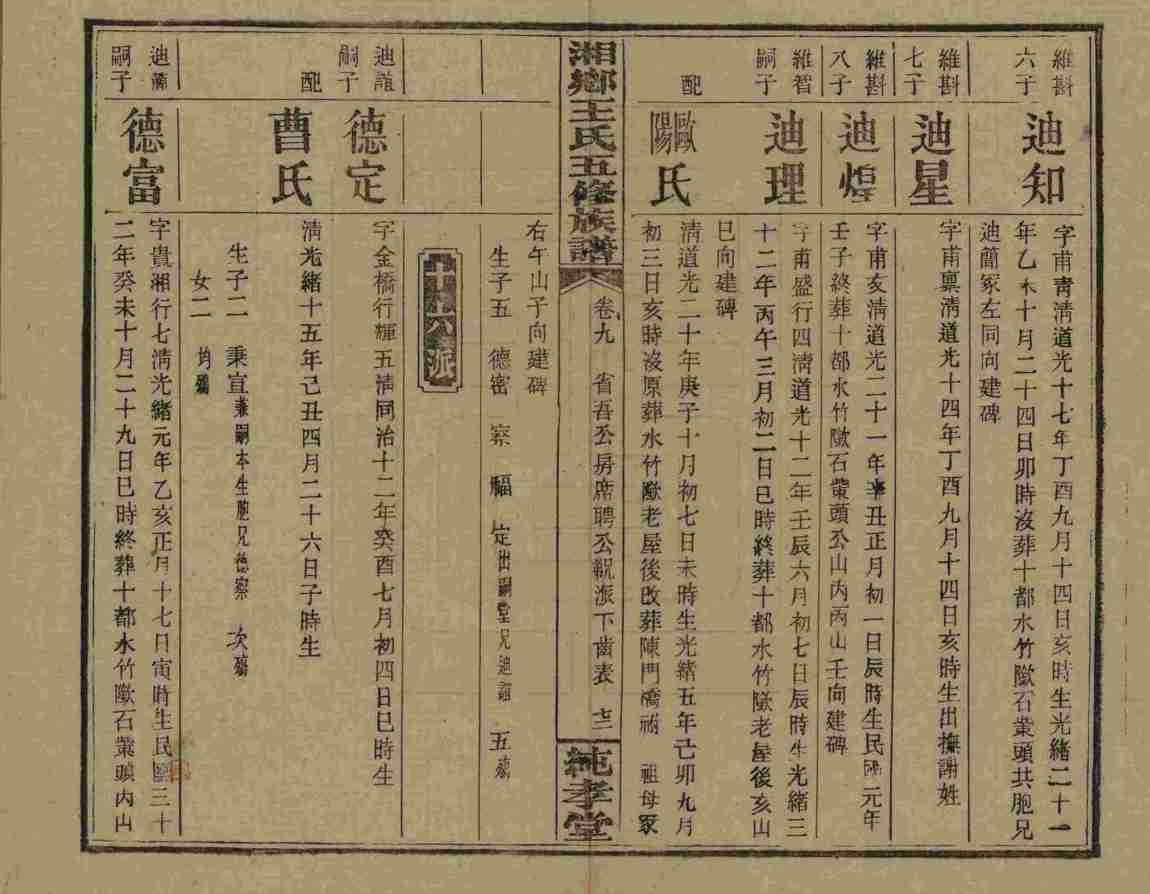 維斟
六子
迪知
字甫青清道光十七年丁酉九月十四日亥時生光緒二十一
年乙未十月二十四日卯時沒葬十都水竹隞石業頭共胞兄
迪蘭冢左同向建碑
維斟
七子
迪星
字甫稟清道光十四年丁酉九月十四日亥時生出撫謝姓
維斟
八子
迪煌
字甫友清道光二十一年辛丑正月初一日辰時生民國元年
壬子終葬十都水竹隞石業頭公山内丙山壬向建碑
維智
嗣子
迪理
字甫盛行四清道光十二年壬辰六月初七日辰時生光緒三
十二年丙午三月初二日巳時終葬十都水竹隞老屋後亥山
巳向建碑
配
歐陽氏
清道光二十年庚子十月初七日未時生光緒五年己卯九月
初三日亥時沒原葬水竹隞老屋後改葬陳門橋祔 祖母冢
湘鄉王氏五修族譜
卷九 省吾公房席聘公 派下齒表 十二
純孝堂
右午山子向建碑
生子五 德密 察 福 定出嗣堂兄迪誼 五殤
十六派
迪誼
嗣子
德定
字金橋行輝五清同治十二年癸酉七月初四日巳時生
配
曹氏
清光緒十五年己丑四月二十六日子時生
生子二 秉宜兼嗣本生胞兄德察 次殤
女二 均殤
迪蘭
嗣子
德富
字貴湘行七清光緒元年乙亥正月十七日寅時生民國三十
二年癸未十月二十九日巳時終葬十都水竹隞石業頭内山